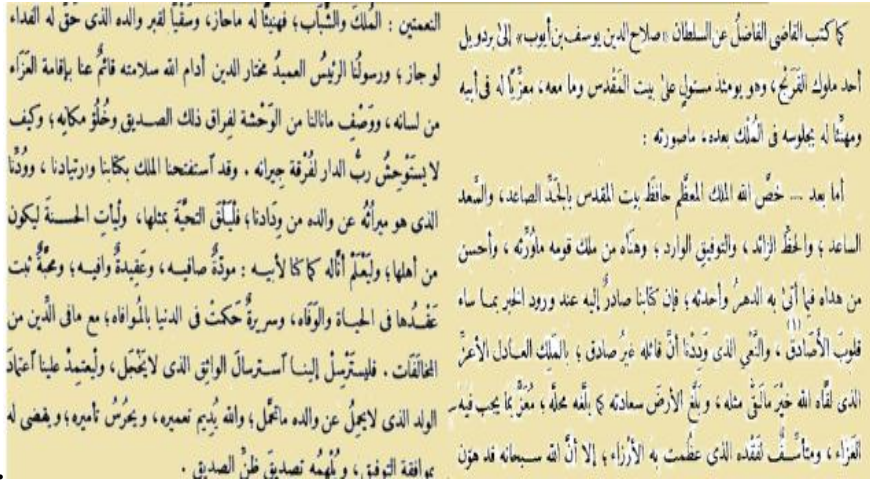 كما كتب القاضى الفاضلُ عن السلطان «صلاح الدين يوسف بن أيوب» إلىٰ بردويل
أحد ملوك الفَرَنْج، وهو يومئذ مستولٍ علىٰ بيت المَقْدس وما معه، معزِّيًا له فى أبيه
ومهنِّئا له بجلوسه فى المُلْك بعده، ماصورته :
أما بعد ... خصَّ الله الملك المعظَّم حافظَ بيت المقدس بالجَدِّ الصاعد، والسَّعد
الساعد ؛ والحظِّ الزائد، والتوفيق الوارد ؛ وهنَّأه من ملك قومه ماوُرِّثه، وأحسن
من هداه فيما أتىٰ به الدهرُ وأحدثه ؛ فإن كتابنا صادرٌ إليه عند ورود الخبر بمـا ساء
قلوبَ الأَصَادِق(١) ، والنَّعْىِ الذى وَدِدْنا أنَّ قائله غيرُ صادق ؛ بالملك العـادل الأعزّ
الذى لقَّاه الله خَيْرَ مالَقَّ مثله، وبَلَّغ الأرضَ سعادته كما بلَّغه محلَّه ؛ مُعَزٍّ بما يجب فيه
العَزَاء، ومتأسِّـفٌ لفَقْده الذى عظُمت به الأرْزاء ؛ إلا أنَّ الله سـبحانه قد هوّن
النعمتين : المُلكَ والشَّبَاب ؛ فهنيئًا له ماحاز، وسَقْيًا لقبر والده الذى حَقَّ له الفداء
لو جاز ؛ ورسولُنا الرئيسُ العميدُ مختار الدين أدام الله سلامته قائمٌ عنا بإقامة العَزَاء
من لسانه، ووَصْفِ مانالنا من الوَحْشة لفِراق ذلك الصـديق وخُلُوِّ مكانِه ؛ وكيف
لا يستَوْحِشُ ربُّ الدار لفُرْقة جِيرانه . وقد آستفتحنا الملك بكتابنا وآرتيادنا ، ووُدِّنا
الذى هو ميراثُه عن والده من وِدَادنا ؛ فلْيَلْقَ التحيَّةَ بمثلها، ولْيأتِ الحسـنةَ ليكون
من أهلها ؛ وليَعْلَمْ أنَّا له كما كنا لأبيـه : مودّةٌ صافيـه، وعَقِيدةٌ وافيـه ؛ ومحبَّةٌ ثبت
عَقْـدُها فى الحيـاة والوَفَاه، وسريرةٌ حَكمتْ فى الدنيا بالمُوافاه ؛ مع مافى الدِّين من
المخالَفَات . فليستَرْسِلْ إلينـا آسـترسالَ الواثِقِ الذى لايَخْجَل، ولْيعتمِدْ علينا آعتمادَ
الولد الذى لايَحمِلُ عن والده ماتَحمَّل ؛ والله يُدِيم تعميره، ويحرُسُ تأميره ؛ ويقضى له
بموافقة التوفيق ، ويُلْهِمُه تصديقَ ظنِّ الصديق .